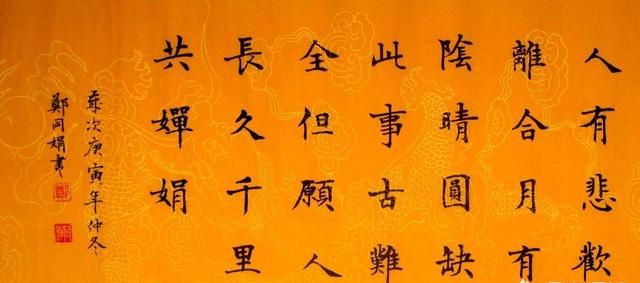 人有悲歡
離合月有
陰晴圓缺
此事古難
全但願人
長久千里
共嬋娟
歲次庚寅年仲冬
鄭同娟書